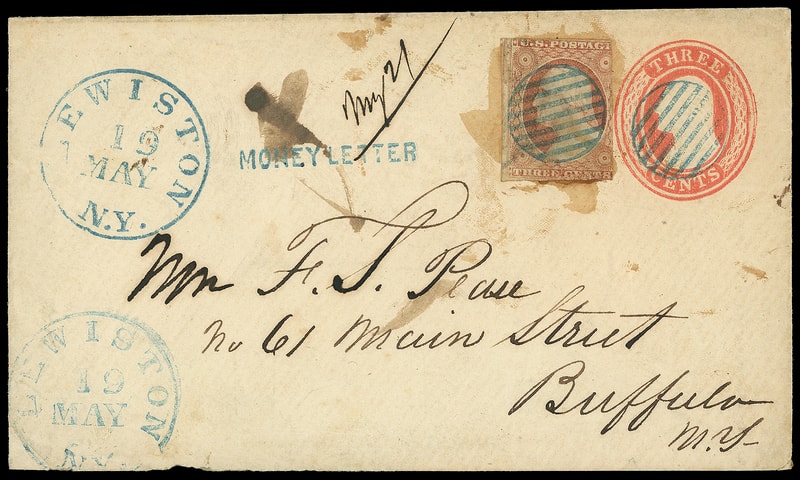 LEWISTON
19
MAY
N.Y.
MONEY LETTER
May 21
U.S. POSTAGE
THREE CENTS
THREE
CENTS
Mr F. S. Pease
No 61 Main Street
Buffalo
N.Y.
LEWISTON
19
MAY
N.Y.